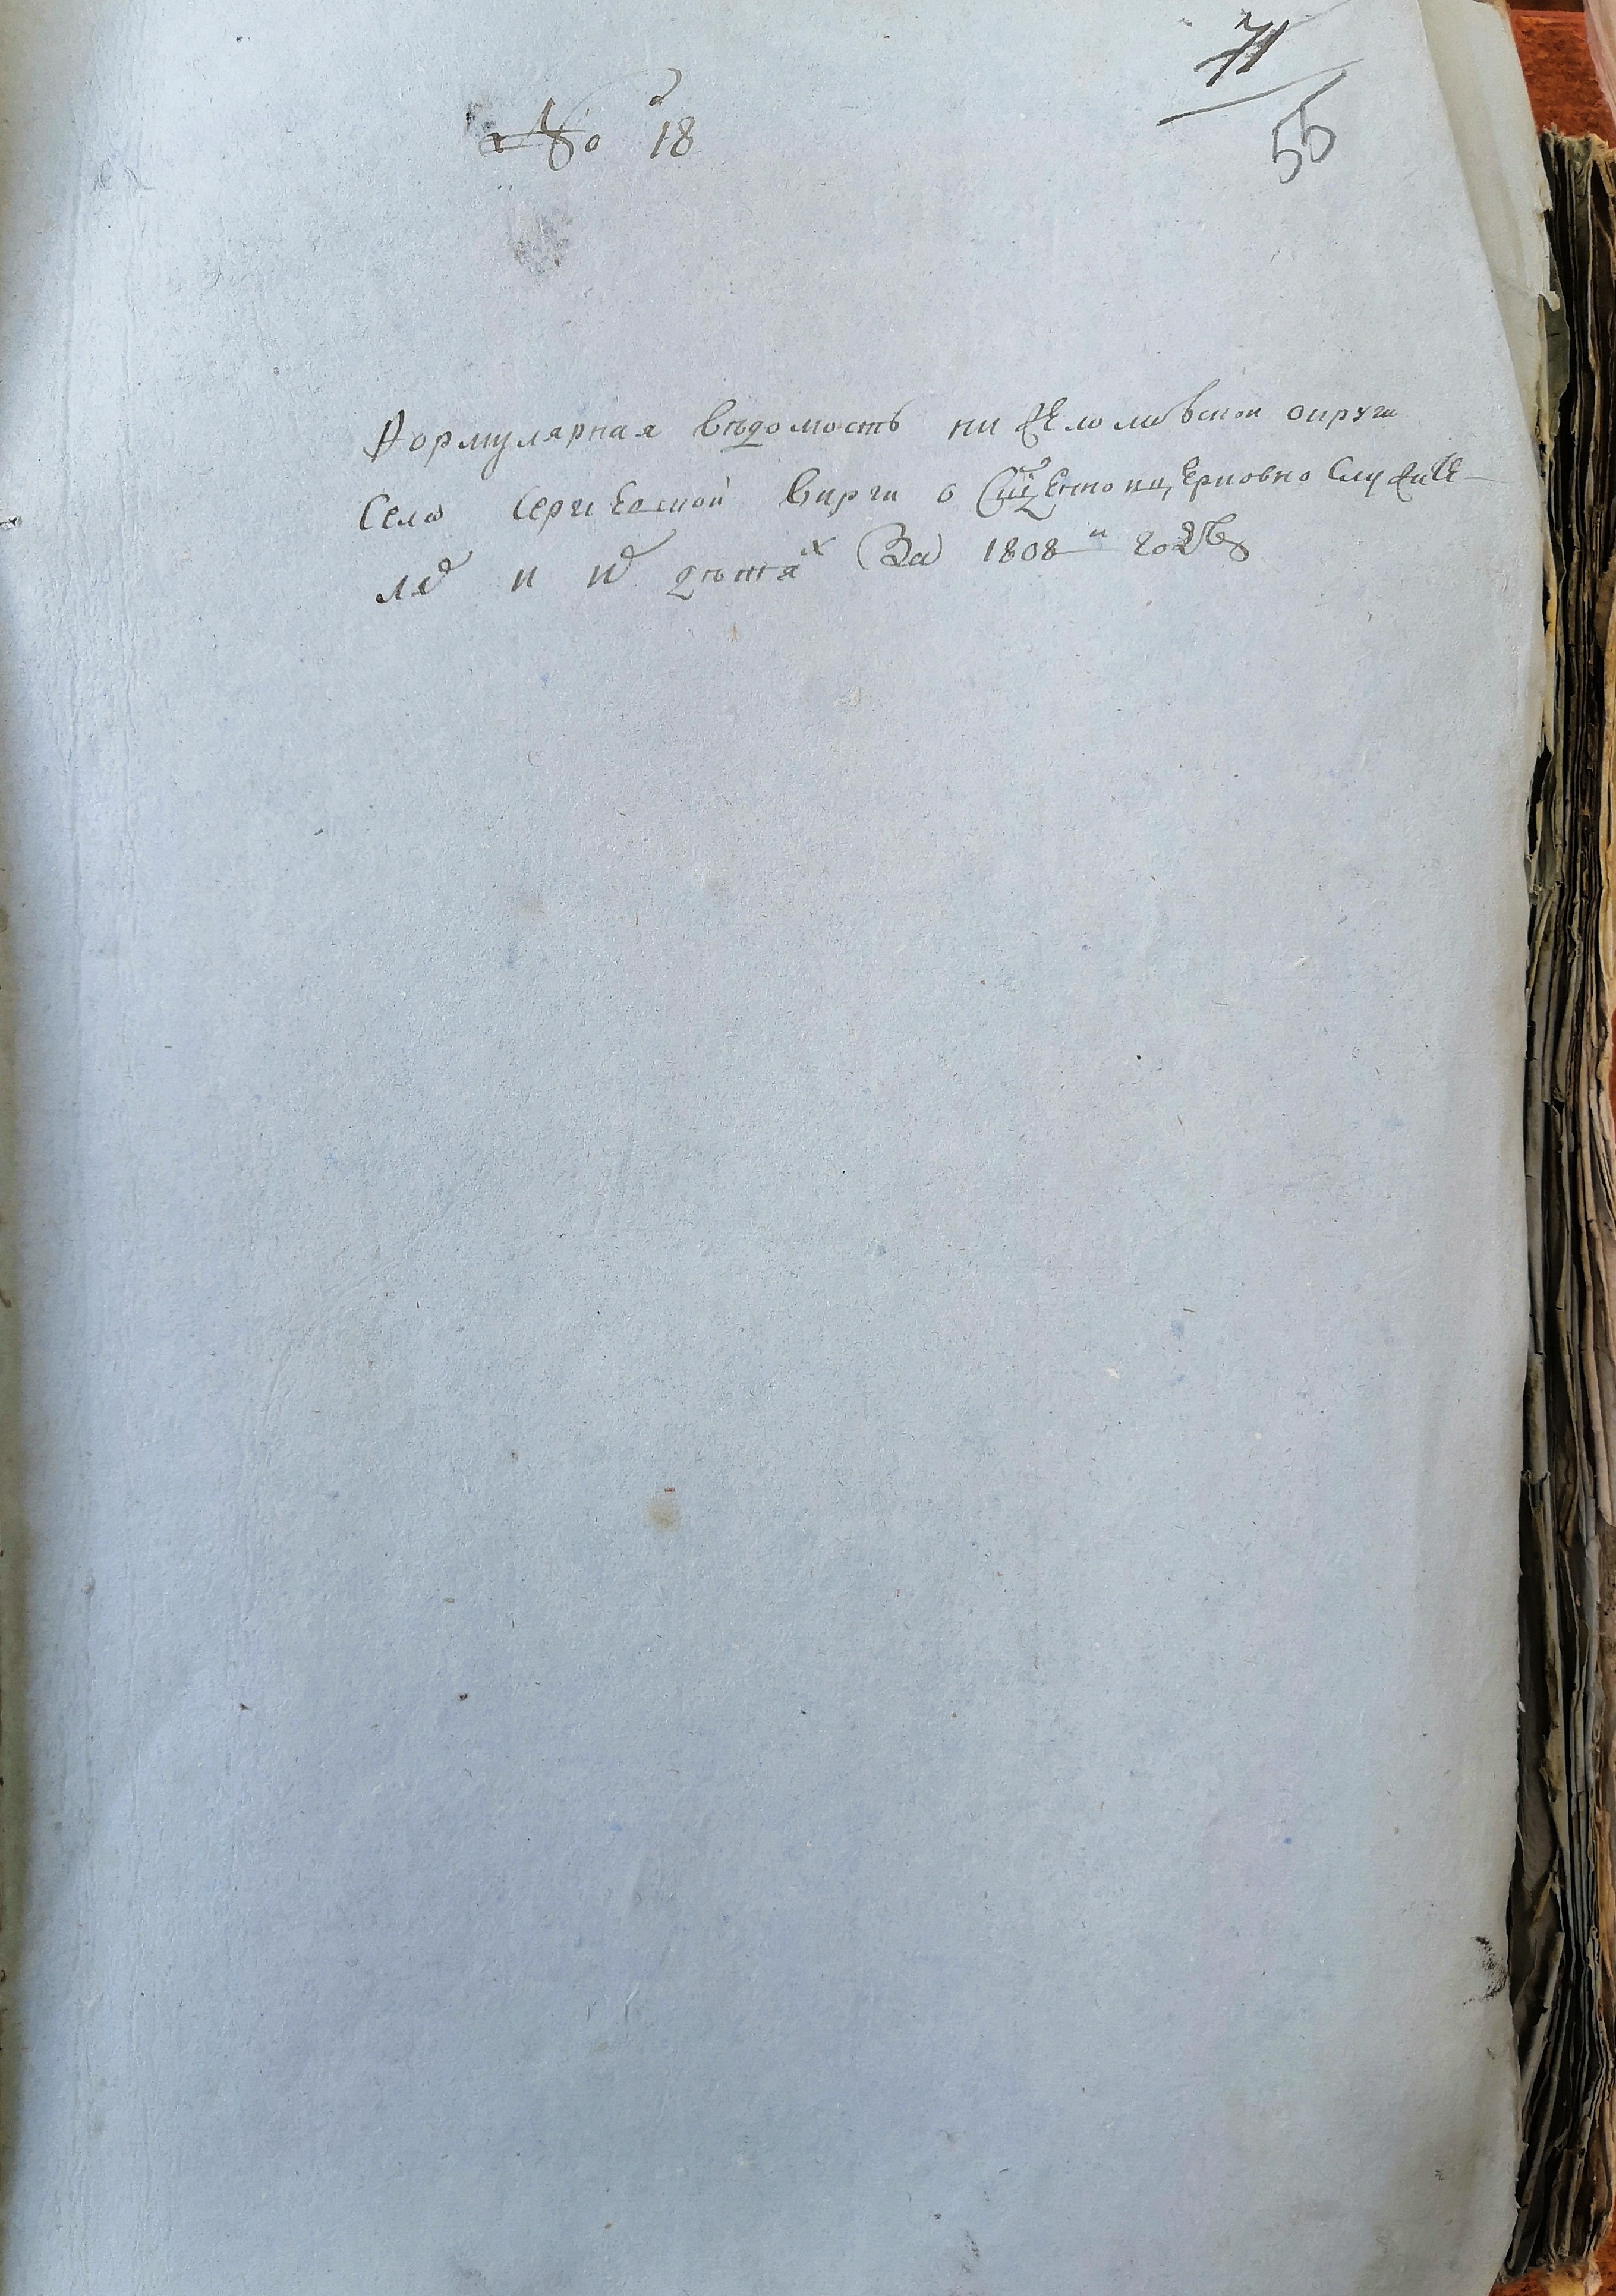 71
55
№ 18
Формулярная вѣдомость Нижеломовской округи
Села Сергиевской Вирги о Сщ҃енно и церковно служите-
ляⷯ и иⷯ дѣтяⷯ За 1808й годъ